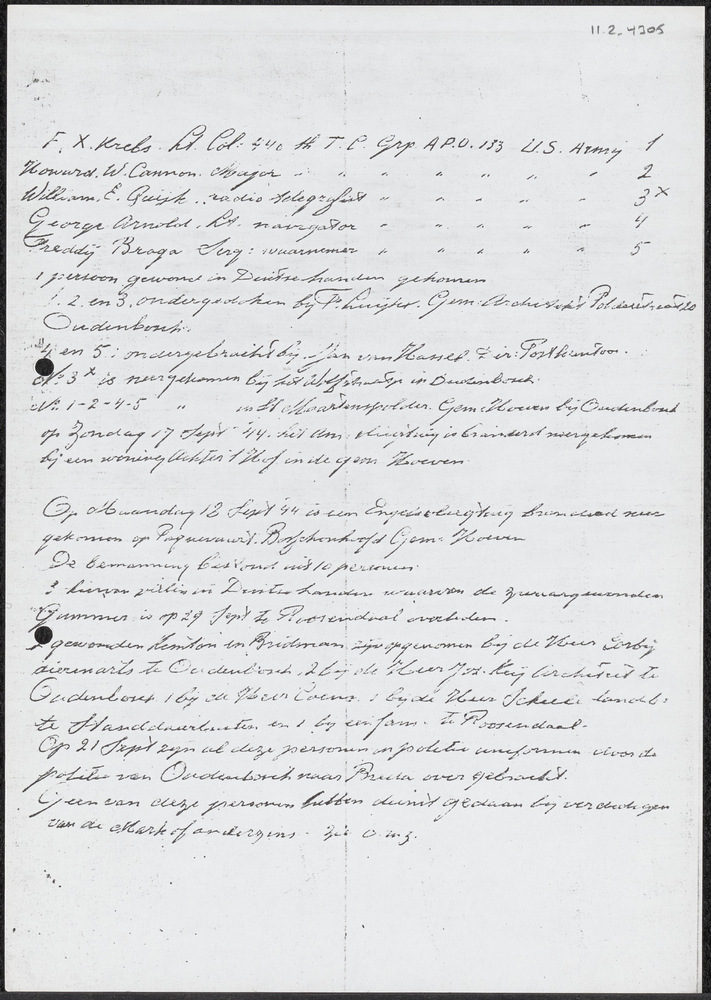 11.2-4305
F. X. Krebs. Lt. Col: 440 th T. C. Grp A.P.O. 133 U.S. Army 1
Howard. W. Cannon. Major " " " " " " 2
William. E. Quijk. radio telegrafist " " " " " 3 x
George Arnold. Lt. navigator " " " " " 4
Freddij Braga Serg: waarnemer " " " " " 5
1 persoon gewond in Duitse handen gekomen
1. 2. en 3. ondergedoken bij Gem:
Oudenbosch.
4 en 5: ondergebracht bij Jan van Hassel. Postkantoor.
No 3 x is neergekomen bij het in Oudenbosch.
No. 1-2-4-5 " in St Maartenspolder. Gem. Hoeven bij Oudenbosch
op Zondag 17 Sept '44. het Am. vliegtuig is brandend neergekomen
bij een woning Achter 't Hof in de gem Hoeven
Op Maandag 18 Sept '44 is een Engels vliegtuig brandend neer
gekomen op Bosschenhoofd Gem: Hoeven
De bemanning bestond uit 10 personen
hiervan vielen in Duitse handen waarvan de zwaargewonden
Gummer is op 29 Sept te Roosendaal overleden.
2 gewonden en Bridman zijn opgenomen bij de Heer
dierenarts te Oudenbosch, 2 bij de Heer Jos. Keij Architect te
Oudenbosch 1 bij de Heer Coenr. 1 bij de Heer
te Standdaarbuiten en 1 bij een fam. te Roosendaal
Op 21 Sept zijn al deze personen in politie uniformen door de
politie van Oudenbosch naar Breda over gebracht.
Geen van deze personen hebben dienst gedaan bij verdedigen
van de Mark of anderzins. zie o.m.z.